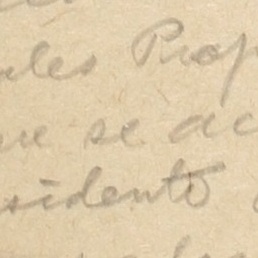 ules Prop
ue se ac
sidente